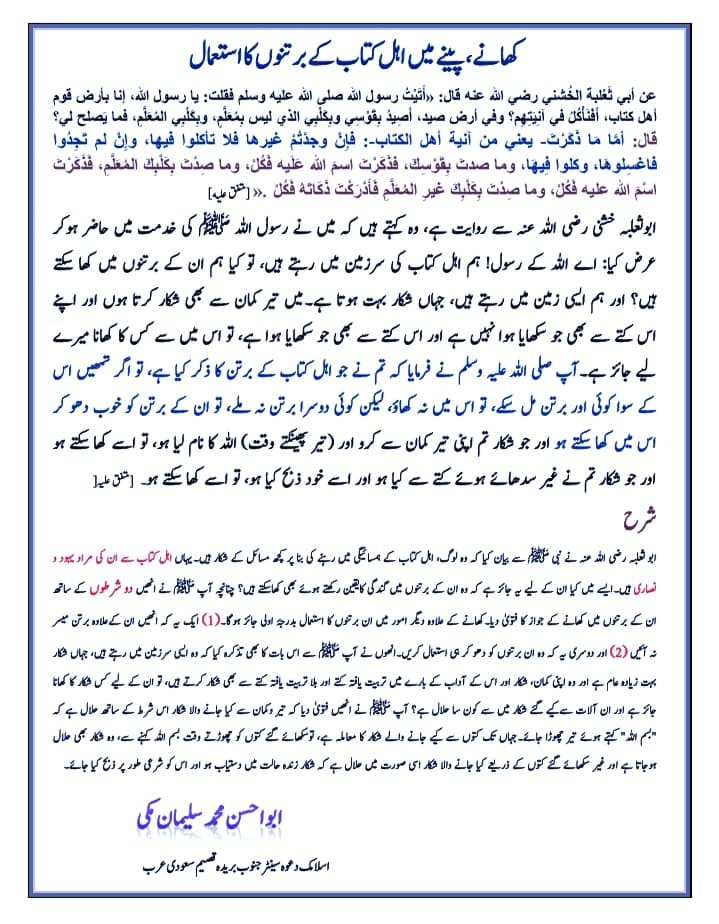 کھانے، پینے میں اہل کتاب کے برتنوں کا استعمال
عن أبي ثَعْلبة الخُشَني رضي الله عنه قال: «أَتَيْتُ رسول الله صلى الله عليه وسلم فقلت: يا رسول الله، إنا بأرض قوم
أهل كتاب، أَفَنَأْكُلُ في آنِيَتِهم؟ وفي أرض صيد، أَصِيدُ بِقَوْسِي وبِكَلْبِي الذي ليس بِمُعَلَّمٍ، وبِكَلْبِي المُعَلَّمِ، فما يَصلح لي؟
قال: أمَّا مَا ذَكَرْتَ- يعني من آنية أهل الكتاب-: فإنْ وجَدْتُمْ غيرها فلا تأكلوا فيها، وإنْ لم تَجِدُوا
فاغسِلوهَا، وكلوا فيهَا، وما صدتَ بِقَوْسِكَ، فذَكَرْتَ اسمَ الله عَلَيه فَكُلْ، وما صِدْتَ بِكَلْبِكَ المُعَلَّمِ، فَذَكَرْتَ
اسْمَ الله عليه فَكُلْ، وما صِدْتَ بِكَلْبِكَ غيرِ المُعَلَّمِ فَأَدْرَكْتَ ذَكَاتَهُ فَكُلْ .» [متفق علیہ]
ابوثعلبہ خشنی رضی اللہ عنہ سے روایت ہے، وہ کہتے ہیں کہ میں نے رسول اللہ ﷺ کی خدمت میں حاضر ہو کر
عرض کیا: اے اللہ کے رسول! ہم اہل کتاب کی سرزمین میں رہتے ہیں، تو کیا ہم ان کے برتنوں میں کھا سکتے
ہیں؟ اور ہم ایسی زمین میں رہتے ہیں، جہاں شکار بہت ہوتا ہے۔ میں تیر کمان سے بھی شکار کرتا ہوں اور اپنے
اس کتے سے بھی جو سکھایا ہوا نہیں ہے اور اس کتے سے بھی جو سکھایا ہوا ہے، تو اس میں سے کس کا کھانا میرے
لیے جائز ہے۔ آپ صلی اللہ علیہ وسلم نے فرمایا کہ تم نے جو اہل کتاب کے برتن کا ذکر کیا ہے، تو اگر تمھیں اس
کے سوا کوئی اور برتن مل سکے، تو اس میں نہ کھاؤ، لیکن کوئی دوسرا برتن نہ ملے، تو ان کے برتن کو خوب دھو کر
اس میں کھا سکتے ہو اور جو شکار تم اپنی تیر کمان سے کرو اور (تیر پھینکتے وقت) اللہ کا نام لیا ہو، تو اسے کھا سکتے ہو
اور جو شکار تم نے غیر سدھائے ہوئے کتے سے کیا ہو اور اسے خود ذبح کیا ہو، تو اسے کھا سکتے ہو۔ [متفق علیہ]
شرح
ابو ثعلبہ رضی اللہ عنہ نے نبی ﷺ سے بیان کیا کہ وہ لوگ، اہل کتاب کے ہمسائیگی میں رہنے کی بنا پر کچھ مسائل کے شکار ہیں۔ یہاں اہل کتاب سے ان کی مراد یہود و
نصاری ہیں۔ ایسے میں کیا ان کے لیے یہ جائز ہے کہ وہ ان کے برتنوں میں گندگی کا یقین رکھتے ہوئے بھی کھا سکتے ہیں؟ چنانچہ آپ ﷺ نے انھیں دو شرطوں کے ساتھ
ان کے برتنوں میں کھانے کے جواز کا فتویٰ دیا۔ کھانے کے علاوہ دیگر امور میں ان برتنوں کا استعمال بدرجۂ اولی جائز ہوگا۔ (1) ایک یہ کہ انھیں ان کے علاوہ برتن میسر
نہ آئیں (2) اور دوسری یہ کہ وہ ان برتنوں کو دھو کر ہی استعمال کریں۔ انھوں نے آپ ﷺ سے اس بات کا بھی تذکرہ کیا کہ وہ ایسی سرزمین میں رہتے ہیں، جہاں شکار
بہت زیادہ عام ہے اور وہ اپنی کمان، شکار اور اس کے آداب کے بارے میں تربیت یافتہ کتے اور بلا تربیت یافتہ کتے سے بھی شکار کرتے ہیں، تو ان کے لیے کس شکار کا کھانا
جائز ہے اور ان آلات سے کیے گئے شکار میں سے کون سا حلال ہے؟ آپ ﷺ نے انھیں فتویٰ دیا کہ تیر وکمان سے کیا جانے والا شکار اس شرط کے ساتھ حلال ہے کہ
"بسم اللہ" کہتے ہوئے تیر چھوڑا جائے۔ جہاں تک کتوں سے کیے جانے والے شکار کا معاملہ ہے، تو سکھائے گئے کتوں کو چھوڑتے وقت بسم اللہ کہنے سے، وہ شکار بھی حلال
ہوجاتا ہے اور غیر سکھائے گئے کتوں کے ذریعے کیا جانے والا شکار اسی صورت میں حلال ہے کہ شکار زندہ حالت میں دستیاب ہو اور اس کو شرعی طور پر ذبح کیا جائے۔
ابو احسن محمد سلیمان مکی
اسلامک دعوہ سینٹر جنوب بریدہ قصیم سعودی عرب